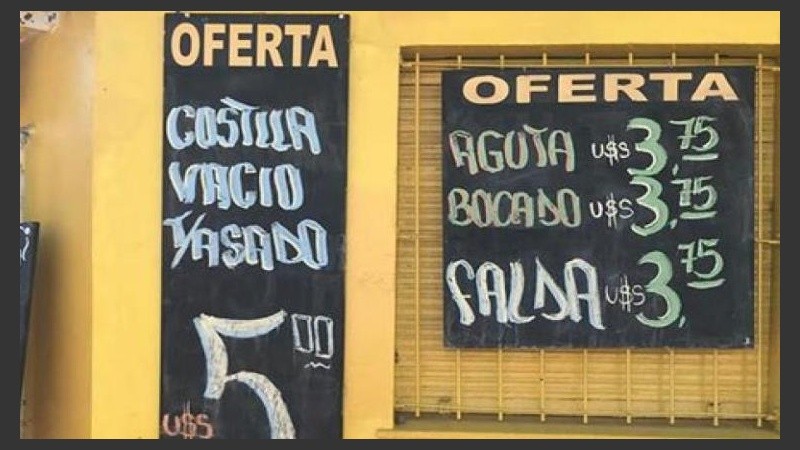 OFERTA
COSTILLA
VACIO
Y/ASADO
U$S 5,00
OFERTA
AGUJA U$S 3,75
BOCADO U$S 3,75
FALDA U$S 3,75